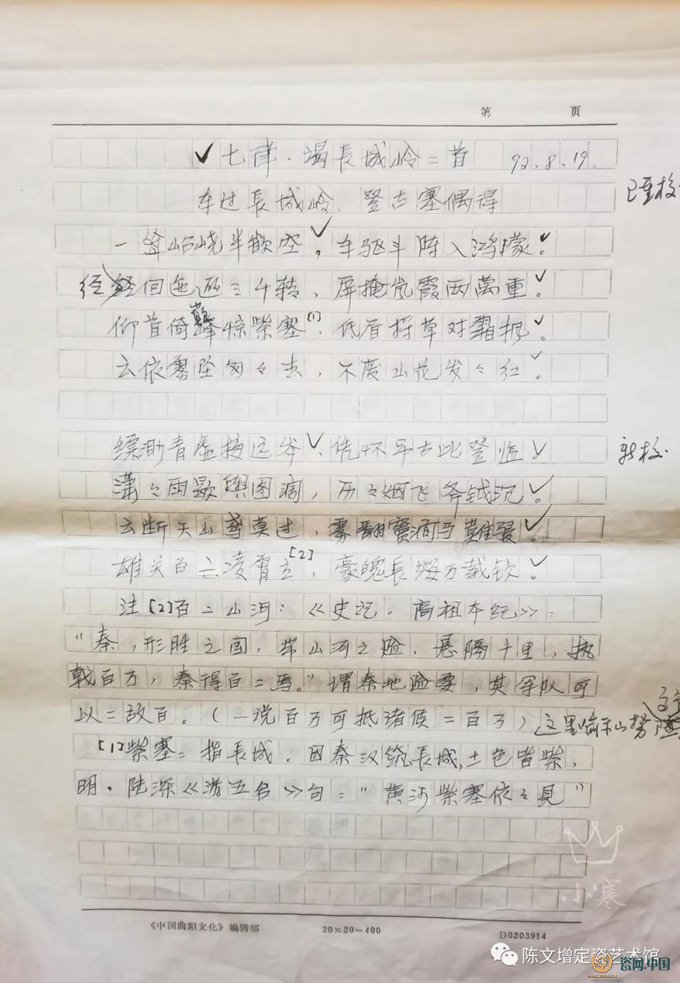 第 页
七律·谒長城岭二首 92.8.19.
车过長城岭、登古塞偶得
已重校
一耸岧峣半欲空，车驱斗阵入鸿蒙。
径回迤逦三千转，屏掩岚霞四萬重。
仰首倚 惊紫塞[1]，低眉 草对 枫。
云依雾坠匆々去，不废山花发々红。
缥渺青虚接远岑，凭怀吊古此登临。
新校
潇々雨歇舆图 ，历々烟飞斧钺沉。
云断天山鸢莫过，雾 寒河马難 。
雄关百二凌霄立[2]，豪魄長缨万载钦。
注[2]百二山河：《史记·高祖本纪》：
“秦，形胜之国，带山河之险，悬隔千里，执
戟百万，秦得百二焉。”谓秦地险要，其军队可
以二敌百。（一说百万可抵诸侯二百万）这里喻示山势
[1]紫塞：指長城。因秦汉筑長城，土色皆紫，
明·陆深《游五台》句：“黄河紫塞依々見”
小寒
《中国曲阳文化》编辑部 20×20=400 D0203914
陈文增定瓷艺术馆
瓷网.中国